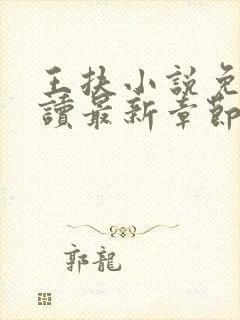 王扶小説免
讀最新章節
郭龍